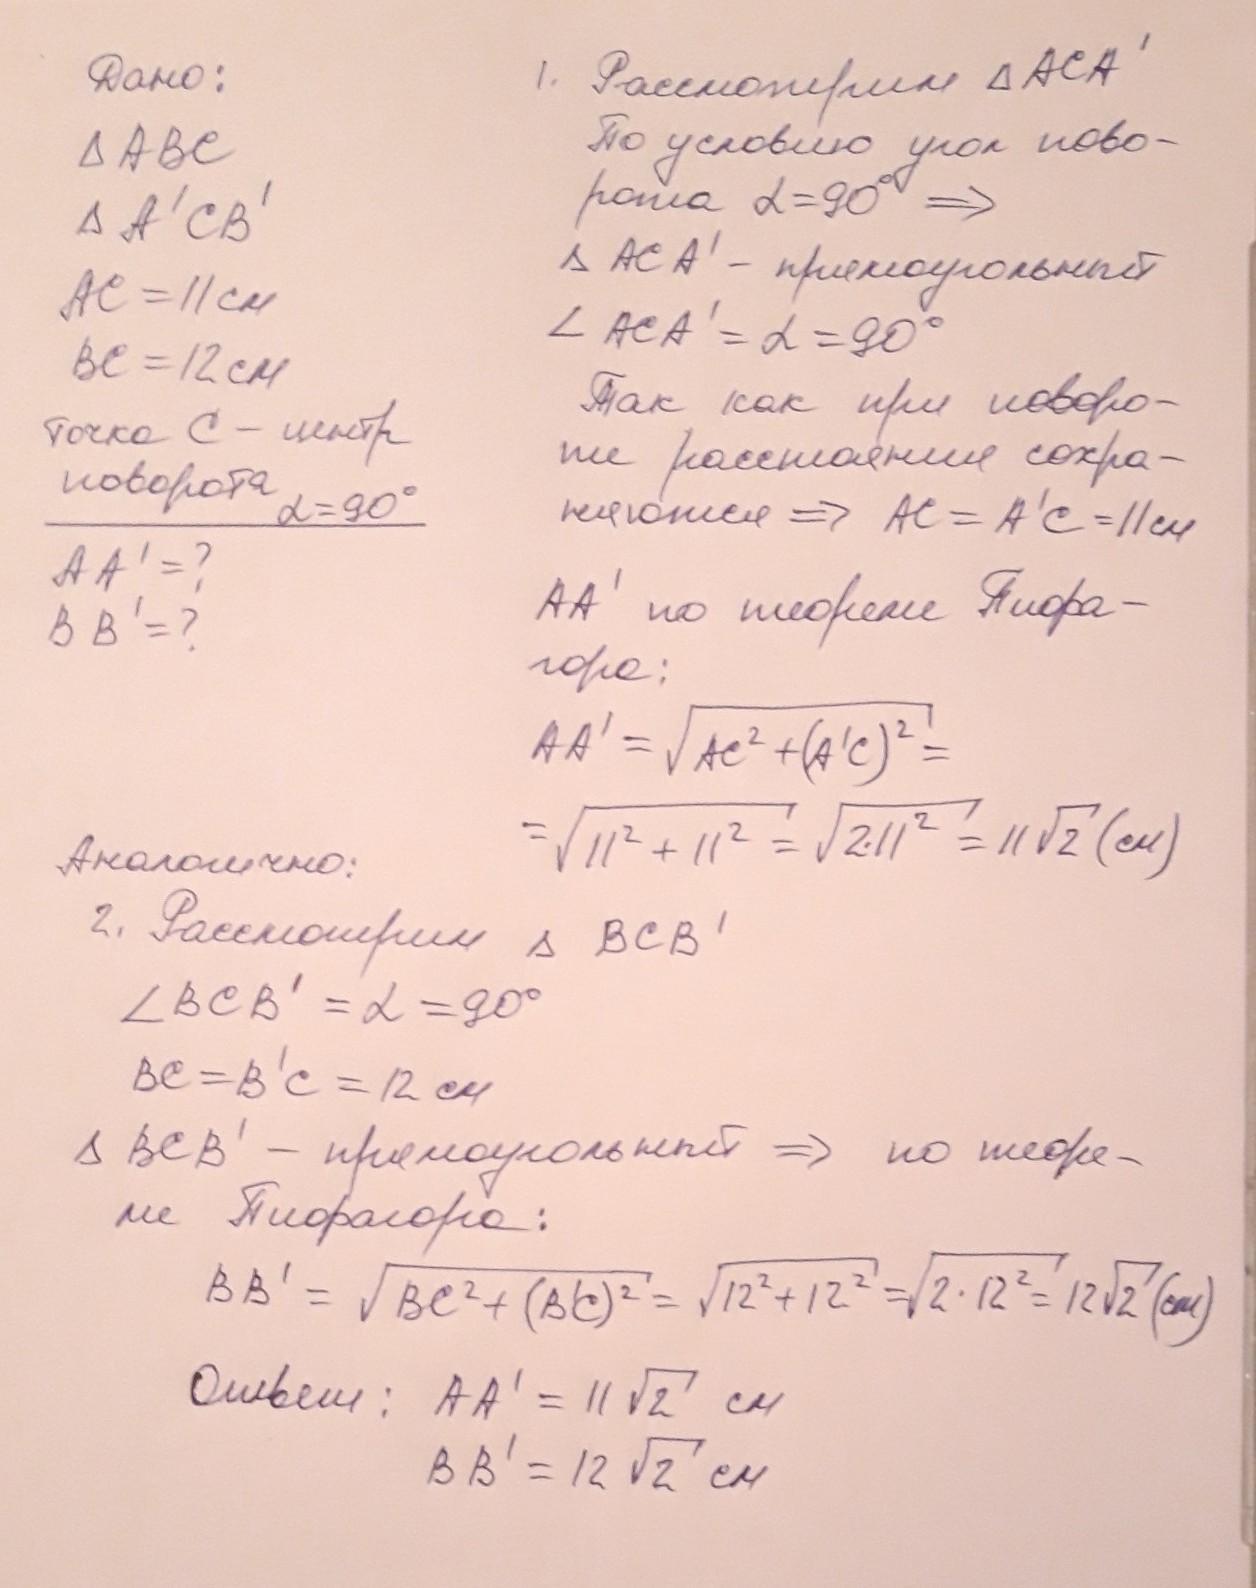 Дано:
Δ ABC
Δ A'CB'
AC = 11 см
BC = 12 см
точка C – центр
поворота
α = 90°
AA' = ?
BB' = ?
1. Рассмотрим Δ ACA'
По условию угол пово-
рота α = 90° ⇒
Δ ACA' – прямоугольный
∠ ACA' = α = 90°
Так как при поворо-
те расстояния сохра-
няются ⇒ AC = A'C = 11 см
AA' по теореме Пифа-
гора:
AA' = √(AC² + (A'C)²) =
= √(11² + 11²) = √(2·11²) = 11√2 (см)
Аналогично:
2. Рассмотрим Δ BCB'
∠BCB' = α = 90°
BC = B'C = 12 см
Δ BCB' – прямоугольный ⇒ по теоре-
ме Пифагора:
BB' = √(BC² + (B'C)²) = √(12² + 12²) = √(2·12²) = 12√2 (см)
Ответ: AA' = 11√2 см
BB' = 12√2 см